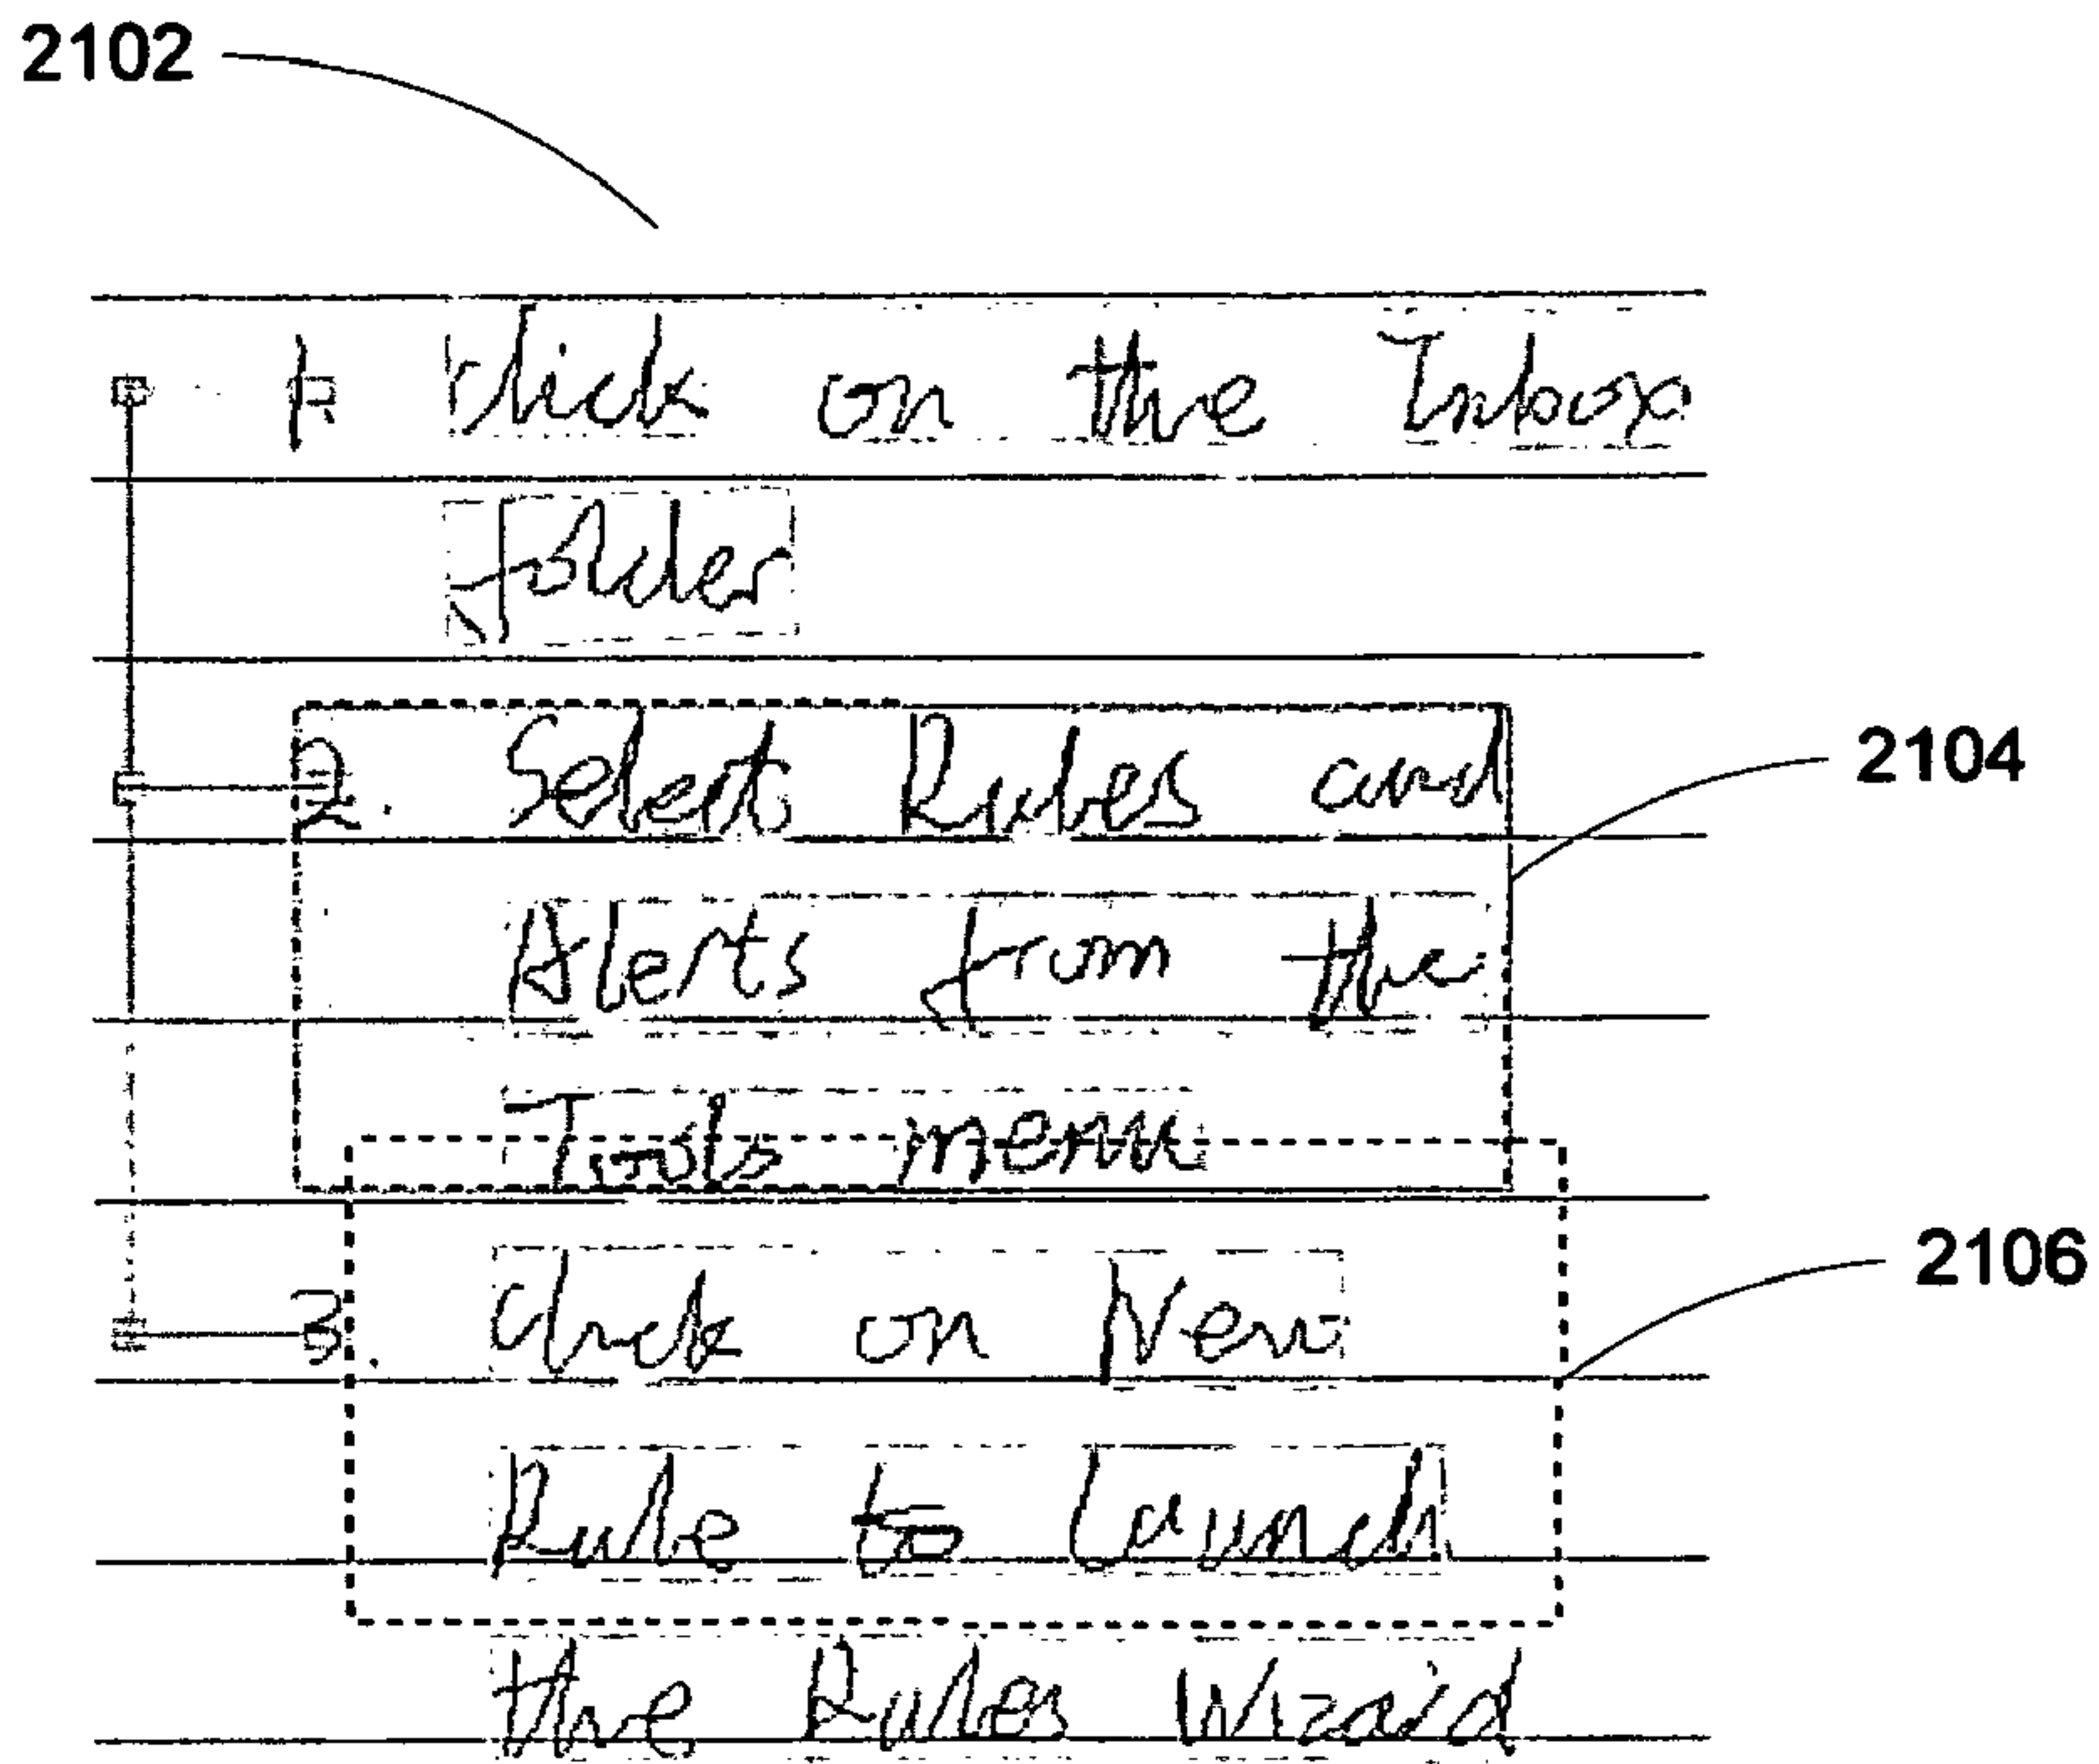 2102
1. Click on the Inbox
folder
2. Select Rules and
2104
Alerts from the
Tools menu
2106
3. Click on New
Rule to launch
the Rules Wizard